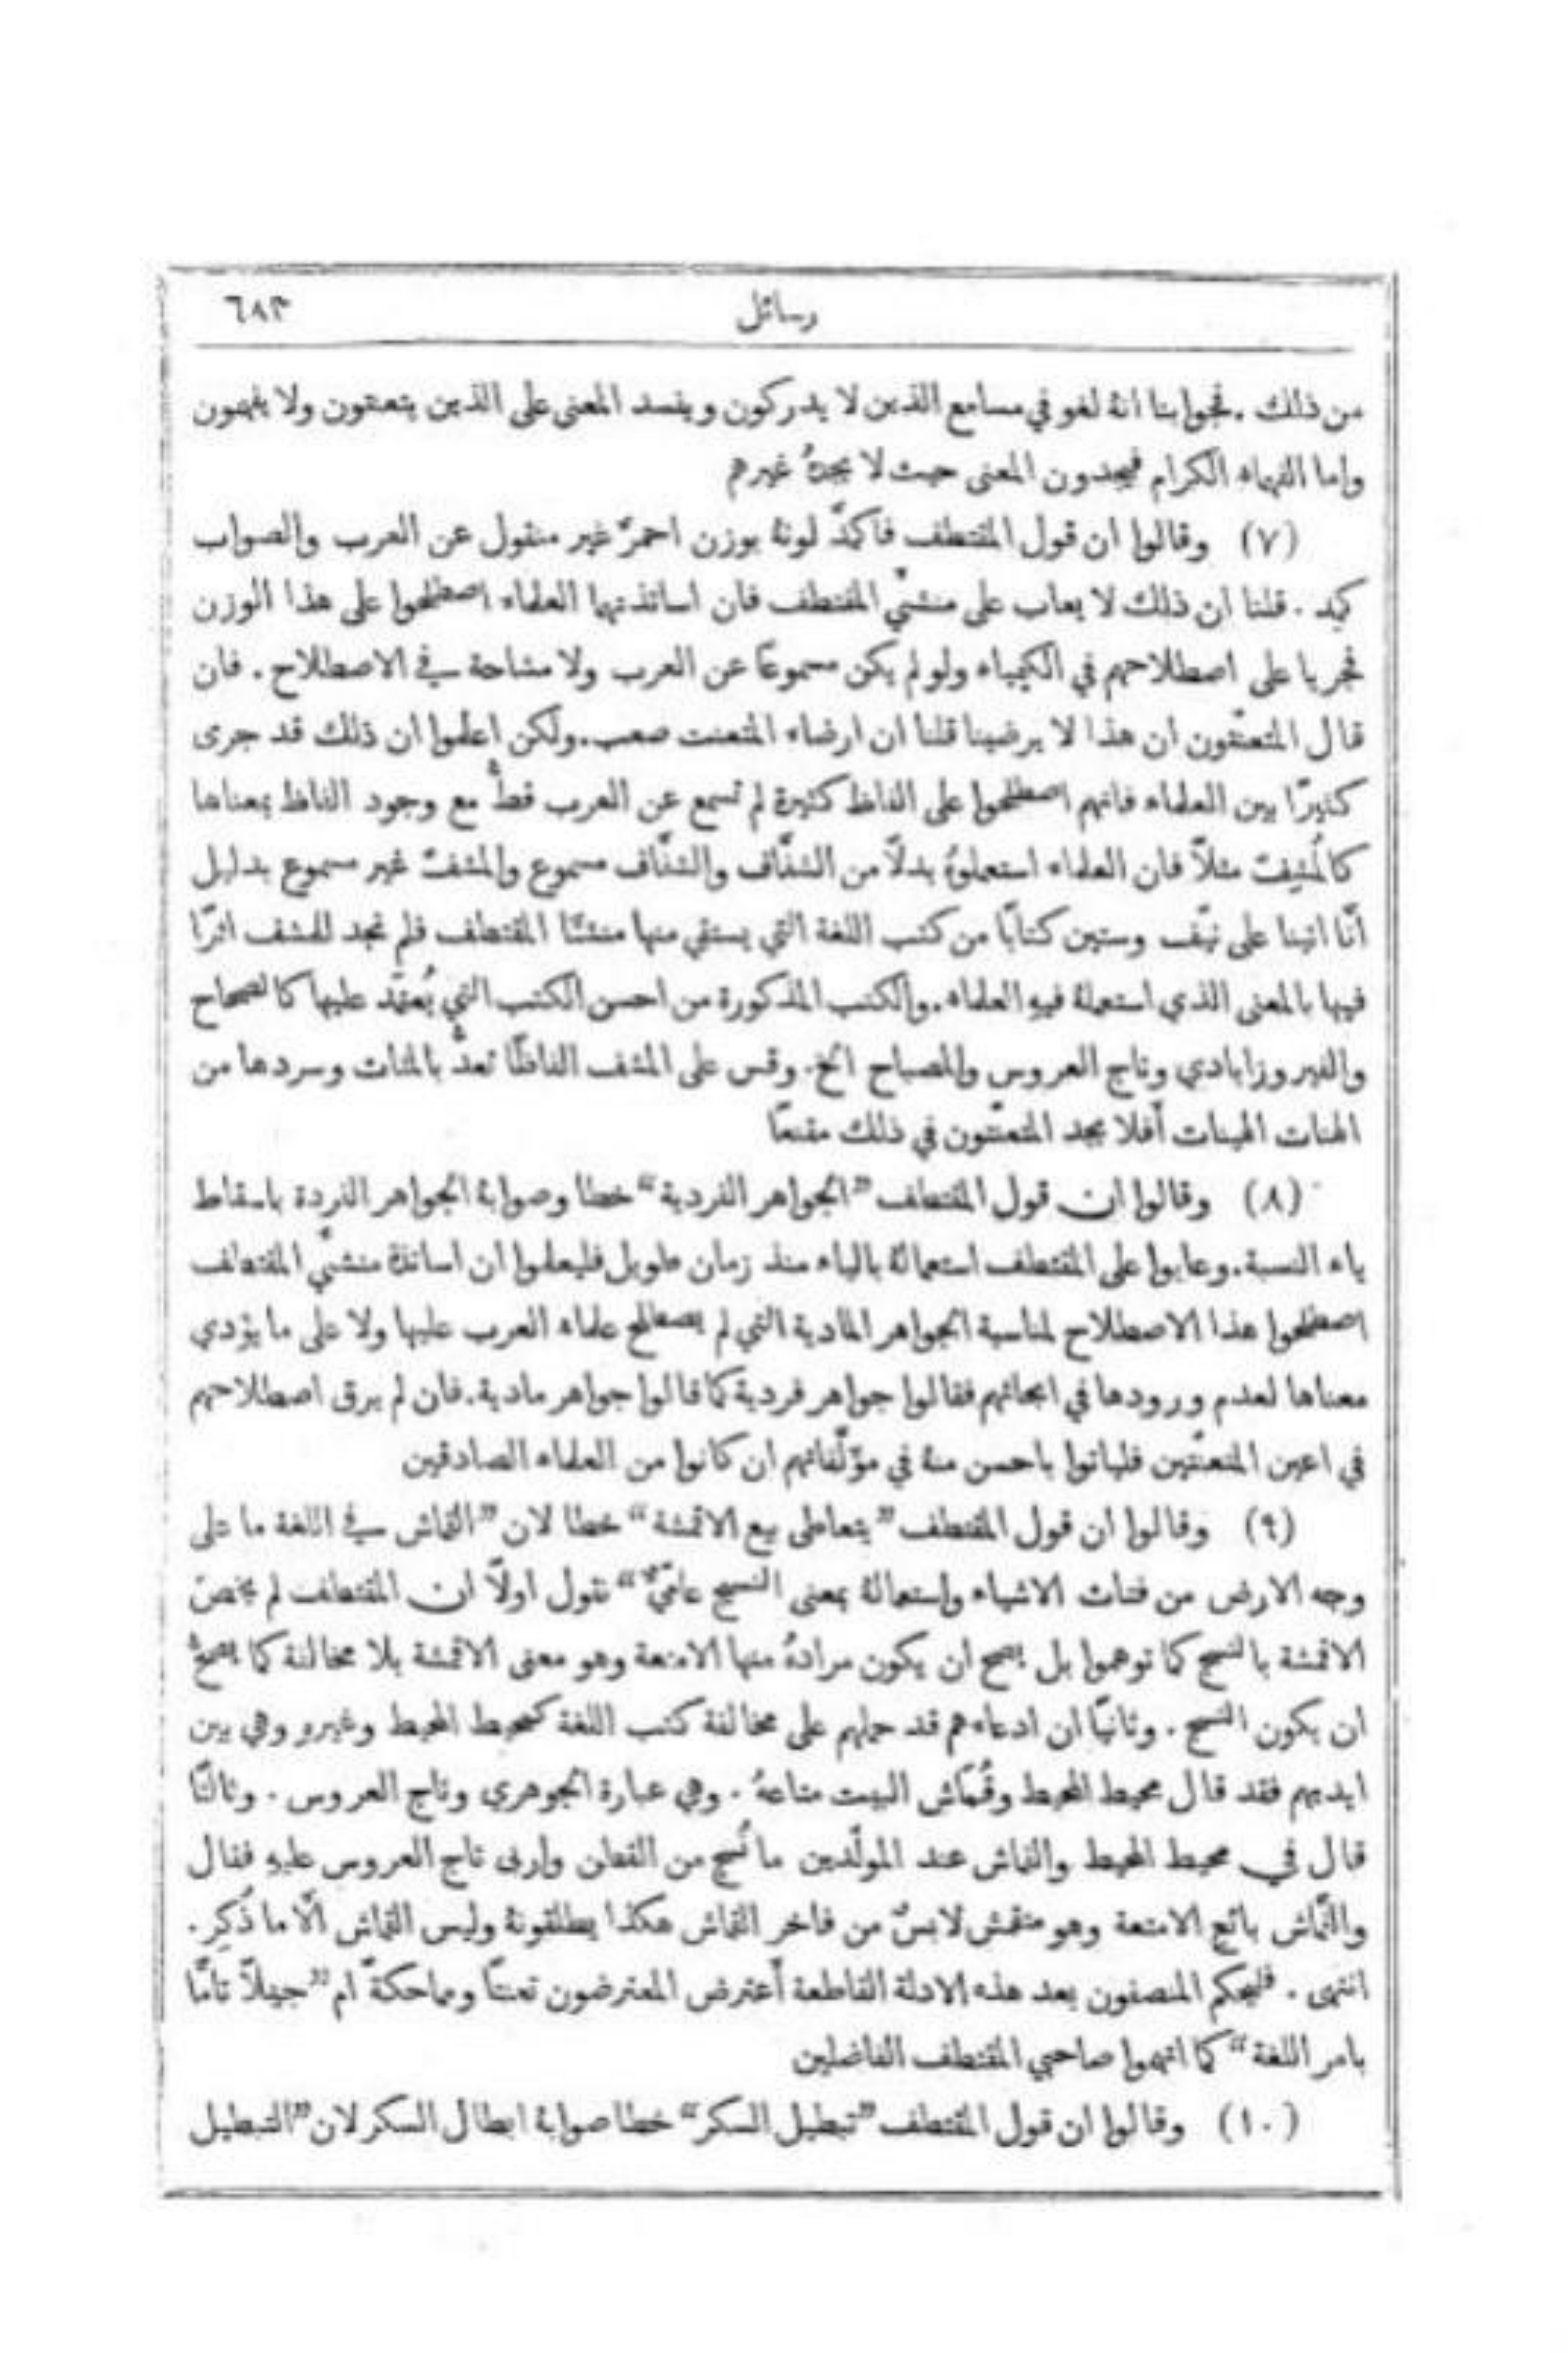 رسائل ٦٨٣
من ذلك . فجوابنا انهُ لغو في مسامع الذين لا يدركون ويفسد المعنى على الذين يتعنتون ولا يفهمون
واما الفهماء الكرام فيجدون المعنى حيث لا يجدهُ غيرهم
(٧) وقالوا ان قول المقتطف فاكمدَّ لونهُ بوزن احمرَّ غير منقول عن العرب والصواب
كمِد . قلنا ان ذلك لا يعاب على منشئَي المقتطف فان اساتذتهما العلماء اصطلحوا على هذا الوزن
فجريا على اصطلاحهم في الكيمياء ولو لم يكن مسموعًا عن العرب ولا مشاحة في الاصطلاح . فان
قال المتعنّتون ان هذا لا يرضينا قلنا ان ارضاء المتعنت صعب . ولكن اعلموا ان ذلك قد جرى
كثيرًا بين العلماء فانهم اصطلحوا على الفاظ كثيرة لم تسمع عن العرب قطُّ مع وجود الفاظ بمعناها
كالمُشِفّ مثلاً فان العلماء استعملوهُ بدلاً من الشفَّاف والشفَّاف مسموع والمشفّ غير مسموع بدليل
أنَّا اتينا على نيّف وستين كتابًا من كتب اللغة التي يستقي منها منشئا المقتطف فلم نجد للمشف اثرًا
فيها بالمعنى الذي استعملهُ فيهِ العلماء . والكتب المذكورة من احسن الكتب التي يُعتمَد عليها كالصحاح
والفيروزابادي وتاج العروس والمصباح الخ . وقس على المشف الفاظًا تعدُّ بالمئات وسردها من
الهنات الهينات أفلا يجد المتعنّتون في ذلك مقنعًا
(٨) وقالوا ان قول المقتطف ”الجواهر الفردية“ خطا وصوابهُ الجواهر الفردة باسقاط
ياء النسبة . وعابوا على المقتطف استعمالهُ بالياء منذ زمان طويل فليعلموا ان اساتذة منشئَي المقتطف
اصطلحوا هذا الاصطلاح لمناسبة الجواهر المادية التي لم يصطلح علماء العرب عليها ولا على ما يؤدي
معناها لعدم ورودها في ابحاثهم فقالوا جواهر فردية كما قالوا جواهر مادية . فان لم يرق اصطلاحهم
في اعين المتعنّتين فلياتوا باحسن منهُ في مؤلّفاتهم ان كانوا من العلماء الصادقين
(٩) وقالوا ان قول المقتطف ”يتعاطى بيع الاقمشة“ خطا لان ”القماش في اللغة ما على
وجه الارض من فتات الاشياء واستعمالهُ بمعنى النسيج عامّيٌّ“ نقول اولاً ان المقتطف لم يخصّ
الاقمشة بالنسيج كما توهموا بل يصح ان يكون مرادهُ منها الامتعة وهو معنى الاقمشة بلا مخالفة كما يصحُّ
ان يكون النسيج . وثانيًا ان ادعاءهم قد حملهم على مخالفة كتب اللغة كمحيط المحيط وغيرهِ وهي بين
ايديهم فقد قال محيط المحيط وقُمَاش البيت متاعهُ . وهي عبارة الجوهري وتاج العروس . وثالثًا
قال في محيط المحيط والقماش عند المولّدين ما نُسج من القطن واربى تاج العروس عليهِ فقال
والقمَّاش بائع الامتعة وهو متقمش لابسٌ من فاخر القماش هكذا يطلقونهُ وليس القماش الَّا ما ذُكِر .
انتهى . فليحكم المنصفون بعد هذه الادلة القاطعة أَعترض المعترضون تعنتًا ومماحكةً ام ”جهلاً تامًّا
بامر اللغة“ كما اتهموا صاحبي المقتطف الفاضلين
(١٠) وقالوا ان قول المقتطف ”تبطيل السكر“ خطا صوابهُ ابطال السكر لان ”التبطيل